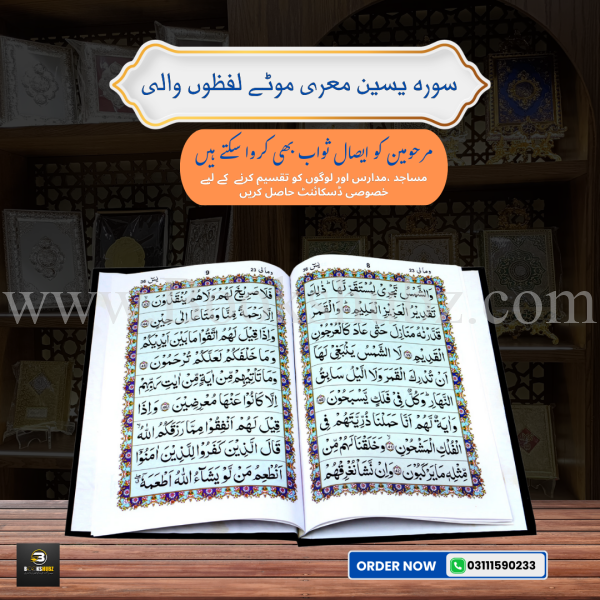 سورہ یسین معری موٹے لفظوں والی
مرحومین کو ایصال ثواب بھی کروا سکتے ہیں
مساجد ،مدارس اور لوگوں کو تقسیم کرنے کے لیے
خصوصی ڈسکائنٹ حاصل کریں
وما لی 23 8 یٰسٓ 36
وَالشَّمْسُ تَجْرِىْ لِمُسْتَقَرٍّ لَّهَا ؕ ذٰلِكَ
تَقْدِيْرُ الْعَزِيْزِ الْعَلِيْمِ وَالْقَمَرَ
قَدَّرْنٰهُ مَنَازِلَ حَتّٰى عَادَ كَالْعُرْجُوْنِ
الْقَدِيْمِ لَا الشَّمْسُ يَنْۢبَغِىْ لَهَاۤ
اَنْ تُدْرِكَ الْقَمَرَ وَلَا الَّيْلُ سَابِقُ
النَّهَارِ ؕ وَكُلٌّ فِىْ فَلَكٍ يَّسْبَحُوْنَ
وَاٰيَةٌ لَّهُمْ اَنَّا حَمَلْنَا ذُرِّيَّتَهُمْ فِى
الْفُلْكِ الْمَشْحُوْنِ وَخَلَقْنَا لَهُمْ مِّنْ
مِّثْلِهٖ مَا يَرْكَبُوْنَ وَاِنْ نَّشَاْ نُغْرِقْهُمْ
وما لی 23 9 یٰسٓ 36
فَلَا صَرِيْخَ لَهُمْ وَلَا هُمْ يُنْقَذُوْنَ
اِلَّا رَحْمَةً مِّنَّا وَمَتَاعًا اِلٰى حِيْنٍ
وَاِذَا قِيْلَ لَهُمُ اتَّقُوْا مَا بَيْنَ اَيْدِيْكُمْ
وَمَا خَلْفَكُمْ لَعَلَّكُمْ تُرْحَمُوْنَ
وَمَا تَاْتِيْهِمْ مِّنْ اٰيَةٍ مِّنْ اٰيٰتِ رَبِّهِمْ
اِلَّا كَانُوْا عَنْهَا مُعْرِضِيْنَ وَاِذَا
قِيْلَ لَهُمْ اَنْفِقُوْا مِمَّا رَزَقَكُمُ اللّٰهُ
قَالَ الَّذِيْنَ كَفَرُوْا لِلَّذِيْنَ اٰمَنُوْۤا
اَنُطْعِمُ مَنْ لَّوْ يَشَآءُ اللّٰهُ اَطْعَمَهٗۤ
ORDER NOW 03111590233